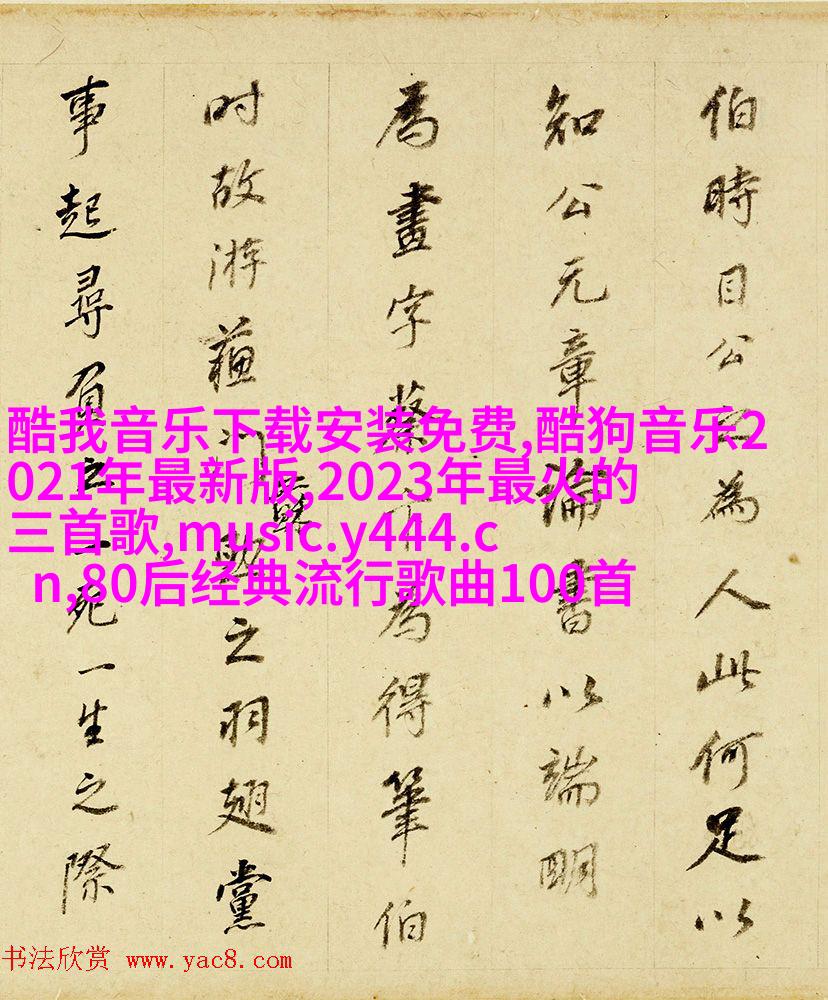 伯時目公以為人此何足以
知公元章論書以端明
為畫字蔡不為得筆伯
时故游蘓州 之羽翅黨
事起尋 之一死一生之際
酷我音乐下载安装免费,酷狗音乐2
021年最新版,2023年最火的
三首歌,music.y444.c
n,80后经典流行歌曲100首
书法欣赏 www.yac8.com